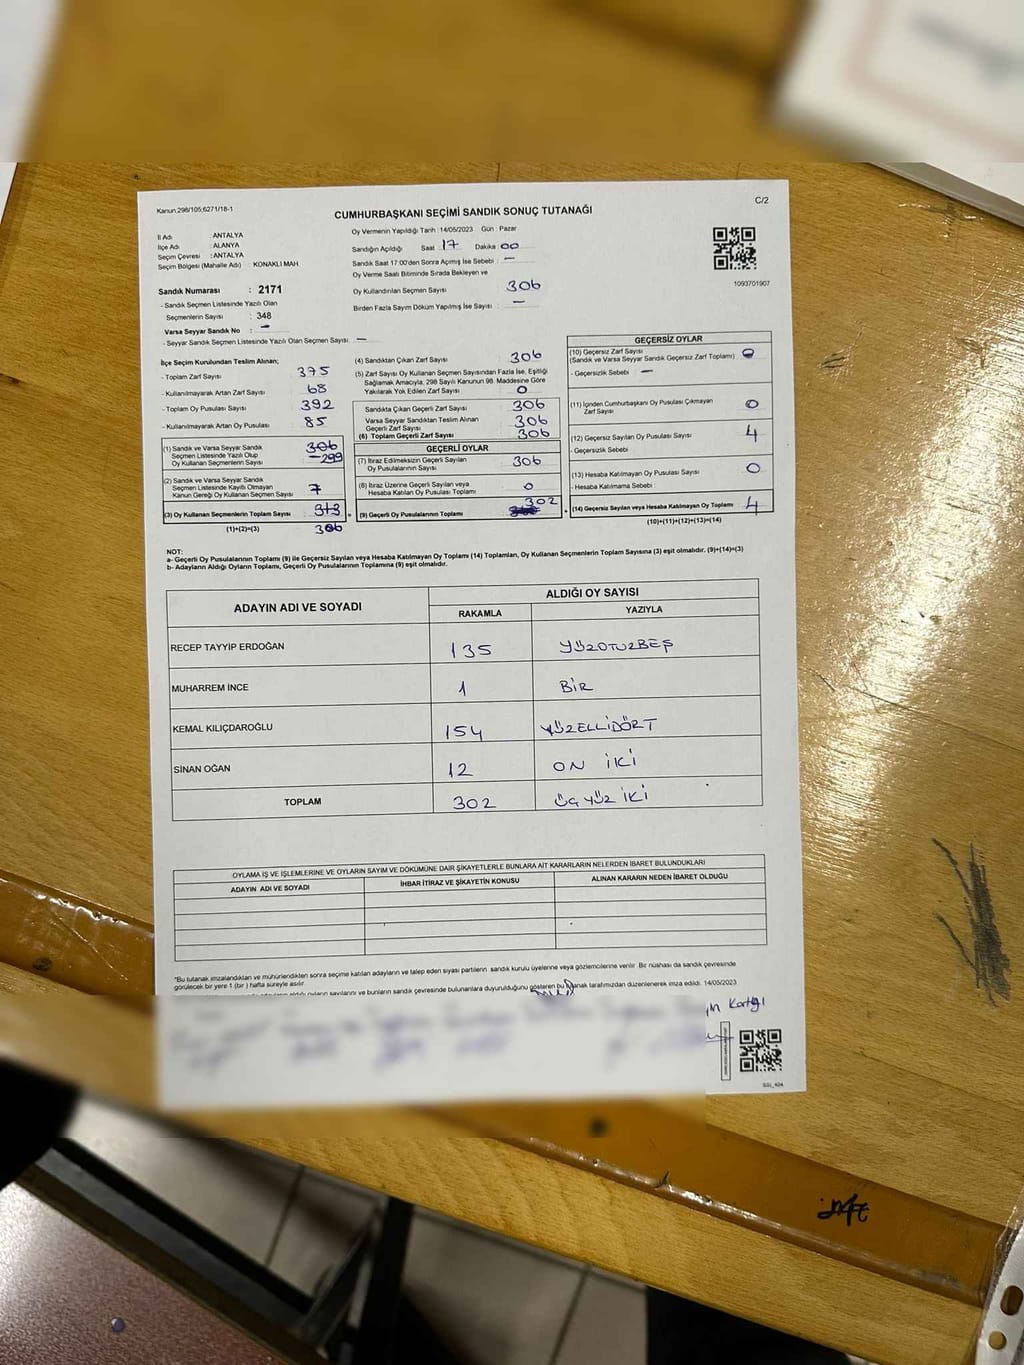 Kanun:298/105;6271/18-1
C/2
CUMHURBAŞKANI SEÇİMİ SANDIK SONUÇ TUTANAĞI
İl Adı : ANTALYA
İlçe Adı : ALANYA
Seçim Çevresi : ANTALYA
Seçim Bölgesi (Mahalle Adı) : KONAKLI MAH
Sandık Numarası : 2171
- Sandık Seçmen Listesinde Yazılı Olan
Seçmenlerin Sayısı : 348
Varsa Seyyar Sandık No : –
- Seyyar Sandık Seçmen Listesinde Yazılı Olan Seçmen Sayısı : –
Oy Vermenin Yapıldığı Tarih : 14/05/2023 Gün : Pazar
Sandığın Açıldığı Saat : 17 Dakika : 00
Sandık Saat 17:00'den Sonra Açılmış İse Sebebi : –
Oy Verme Saati Bitiminde Sırada Bekleyen ve
Oy Kullandırılan Seçmen Sayısı : 306
Birden Fazla Sayım Döküm Yapılmış İse Sayısı : –
1093701907
İlçe Seçim Kurulundan Teslim Alınan;
- Toplam Zarf Sayısı : 375
- Kullanılmayarak Artan Zarf Sayısı : 68
- Toplam Oy Pusulası Sayısı : 392
- Kullanılmayarak Artan Oy Pusulası : 85
(1) Sandık ve Varsa Seyyar Sandık 306
Seçmen Listesinde Yazılı Olup
Oy Kullanan Seçmenlerin Sayısı : 299
(2) Sandık ve Varsa Seyyar Sandık
Seçmen Listesinde Kayıtlı Olmayan
Kanun Gereği Oy Kullanan Seçmen Sayısı : 7
(3) Oy Kullanan Seçmenlerin Toplam Sayısı : 313
(1)+(2)=(3) 306
(4) Sandıktan Çıkan Zarf Sayısı : 306
(5) Zarf Sayısı Oy Kullanan Seçmen Sayısından Fazla İse, Eşitliği
Sağlamak Amacıyla, 298 Sayılı Kanunun 98. Maddesine Göre
Yakılarak Yok Edilen Zarf Sayısı : 0
Sandıkta Çıkan Geçerli Zarf Sayısı : 306
Varsa Seyyar Sandıktan Teslim Alınan
Geçerli Zarf Sayısı : 306
(6) Toplam Geçerli Zarf Sayısı : 306
GEÇERLİ OYLAR
(7) İtiraz Edilmeksizin Geçerli Sayılan
Oy Pusulalarının Sayısı : 306
(8) İtiraz Üzerine Geçerli Sayılan veya
Hesaba Katılan Oy Pusulası Toplamı : 0
(9) Geçerli Oy Pusulalarının Toplamı : 302
GEÇERSİZ OYLAR
(10) Geçersiz Zarf Sayısı : 0
(Sandık ve Varsa Seyyar Sandık Geçersiz Zarf Toplamı)
- Geçersizlik Sebebi : –
(11) İçinden Cumhurbaşkanı Oy Pusulası Çıkmayan
Zarf Sayısı : 0
(12) Geçersiz Sayılan Oy Pusulası Sayısı : 4
- Geçersizlik Sebebi :
(13) Hesaba Katılmayan Oy Pusulası Sayısı : 0
- Hesaba Katılmama Sebebi :
(14) Geçersiz Sayılan veya Hesaba Katılmayan Oy Toplamı : 4
(10)+(11)+(12)+(13)=(14)
NOT:
a- Geçerli Oy Pusulalarının Toplamı (9) ile Geçersiz Sayılan veya Hesaba Katılmayan Oy Toplamı (14) Toplamları, Oy Kullanan Seçmenlerin Toplam Sayısına (3) eşit olmalıdır. (9)+(14)=(3)
b- Adayların Aldığı Oyların Toplamı, Geçerli Oy Pusulalarının Toplamına (9) eşit olmalıdır.
ADAYIN ADI VE SOYADI ALDIĞI OY SAYISI
RAKAMLA YAZIYLA
RECEP TAYYİP ERDOĞAN 135 YÜZOTUZBEŞ
MUHARREM İNCE 1 BİR
KEMAL KILIÇDAROĞLU 154 YÜZELLİDÖRT
SİNAN OĞAN 12 ON İKİ
TOPLAM 302 ÜÇ YÜZ İKİ
OYLAMA İŞ VE İŞLEMLERİNE VE OYLARIN SAYIM VE DÖKÜMÜNE DAİR ŞİKAYETLERLE BUNLARA AİT KARARLARIN NELERDEN İBARET BULUNDUKLARI
ADAYIN ADI VE SOYADI İHBAR İTİRAZ VE ŞİKAYETİN KONUSU ALINAN KARARIN NEDEN İBARET OLDUĞU
*Bu tutanak imzalandıktan ve mühürlendikten sonra seçime katılan adayların ve talep eden siyasi partilerin sandık kurulu üyelerine veya gözlemcilerine verilir. Bir nüshası da sandık çevresinde
görülecek bir yere 1 (bir ) hafta süreyle asılır.
oyların sayılarını ve bunların sandık çevresinde bulunanlara duyurulduğunu gösteren bu tutanak tarafımızdan düzenlenerek imza edildi. 14/05/2023